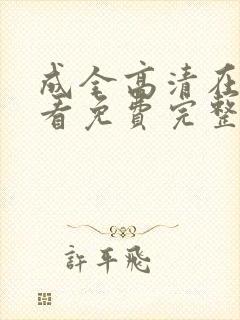 成全高清在
看免费完整
許平飛